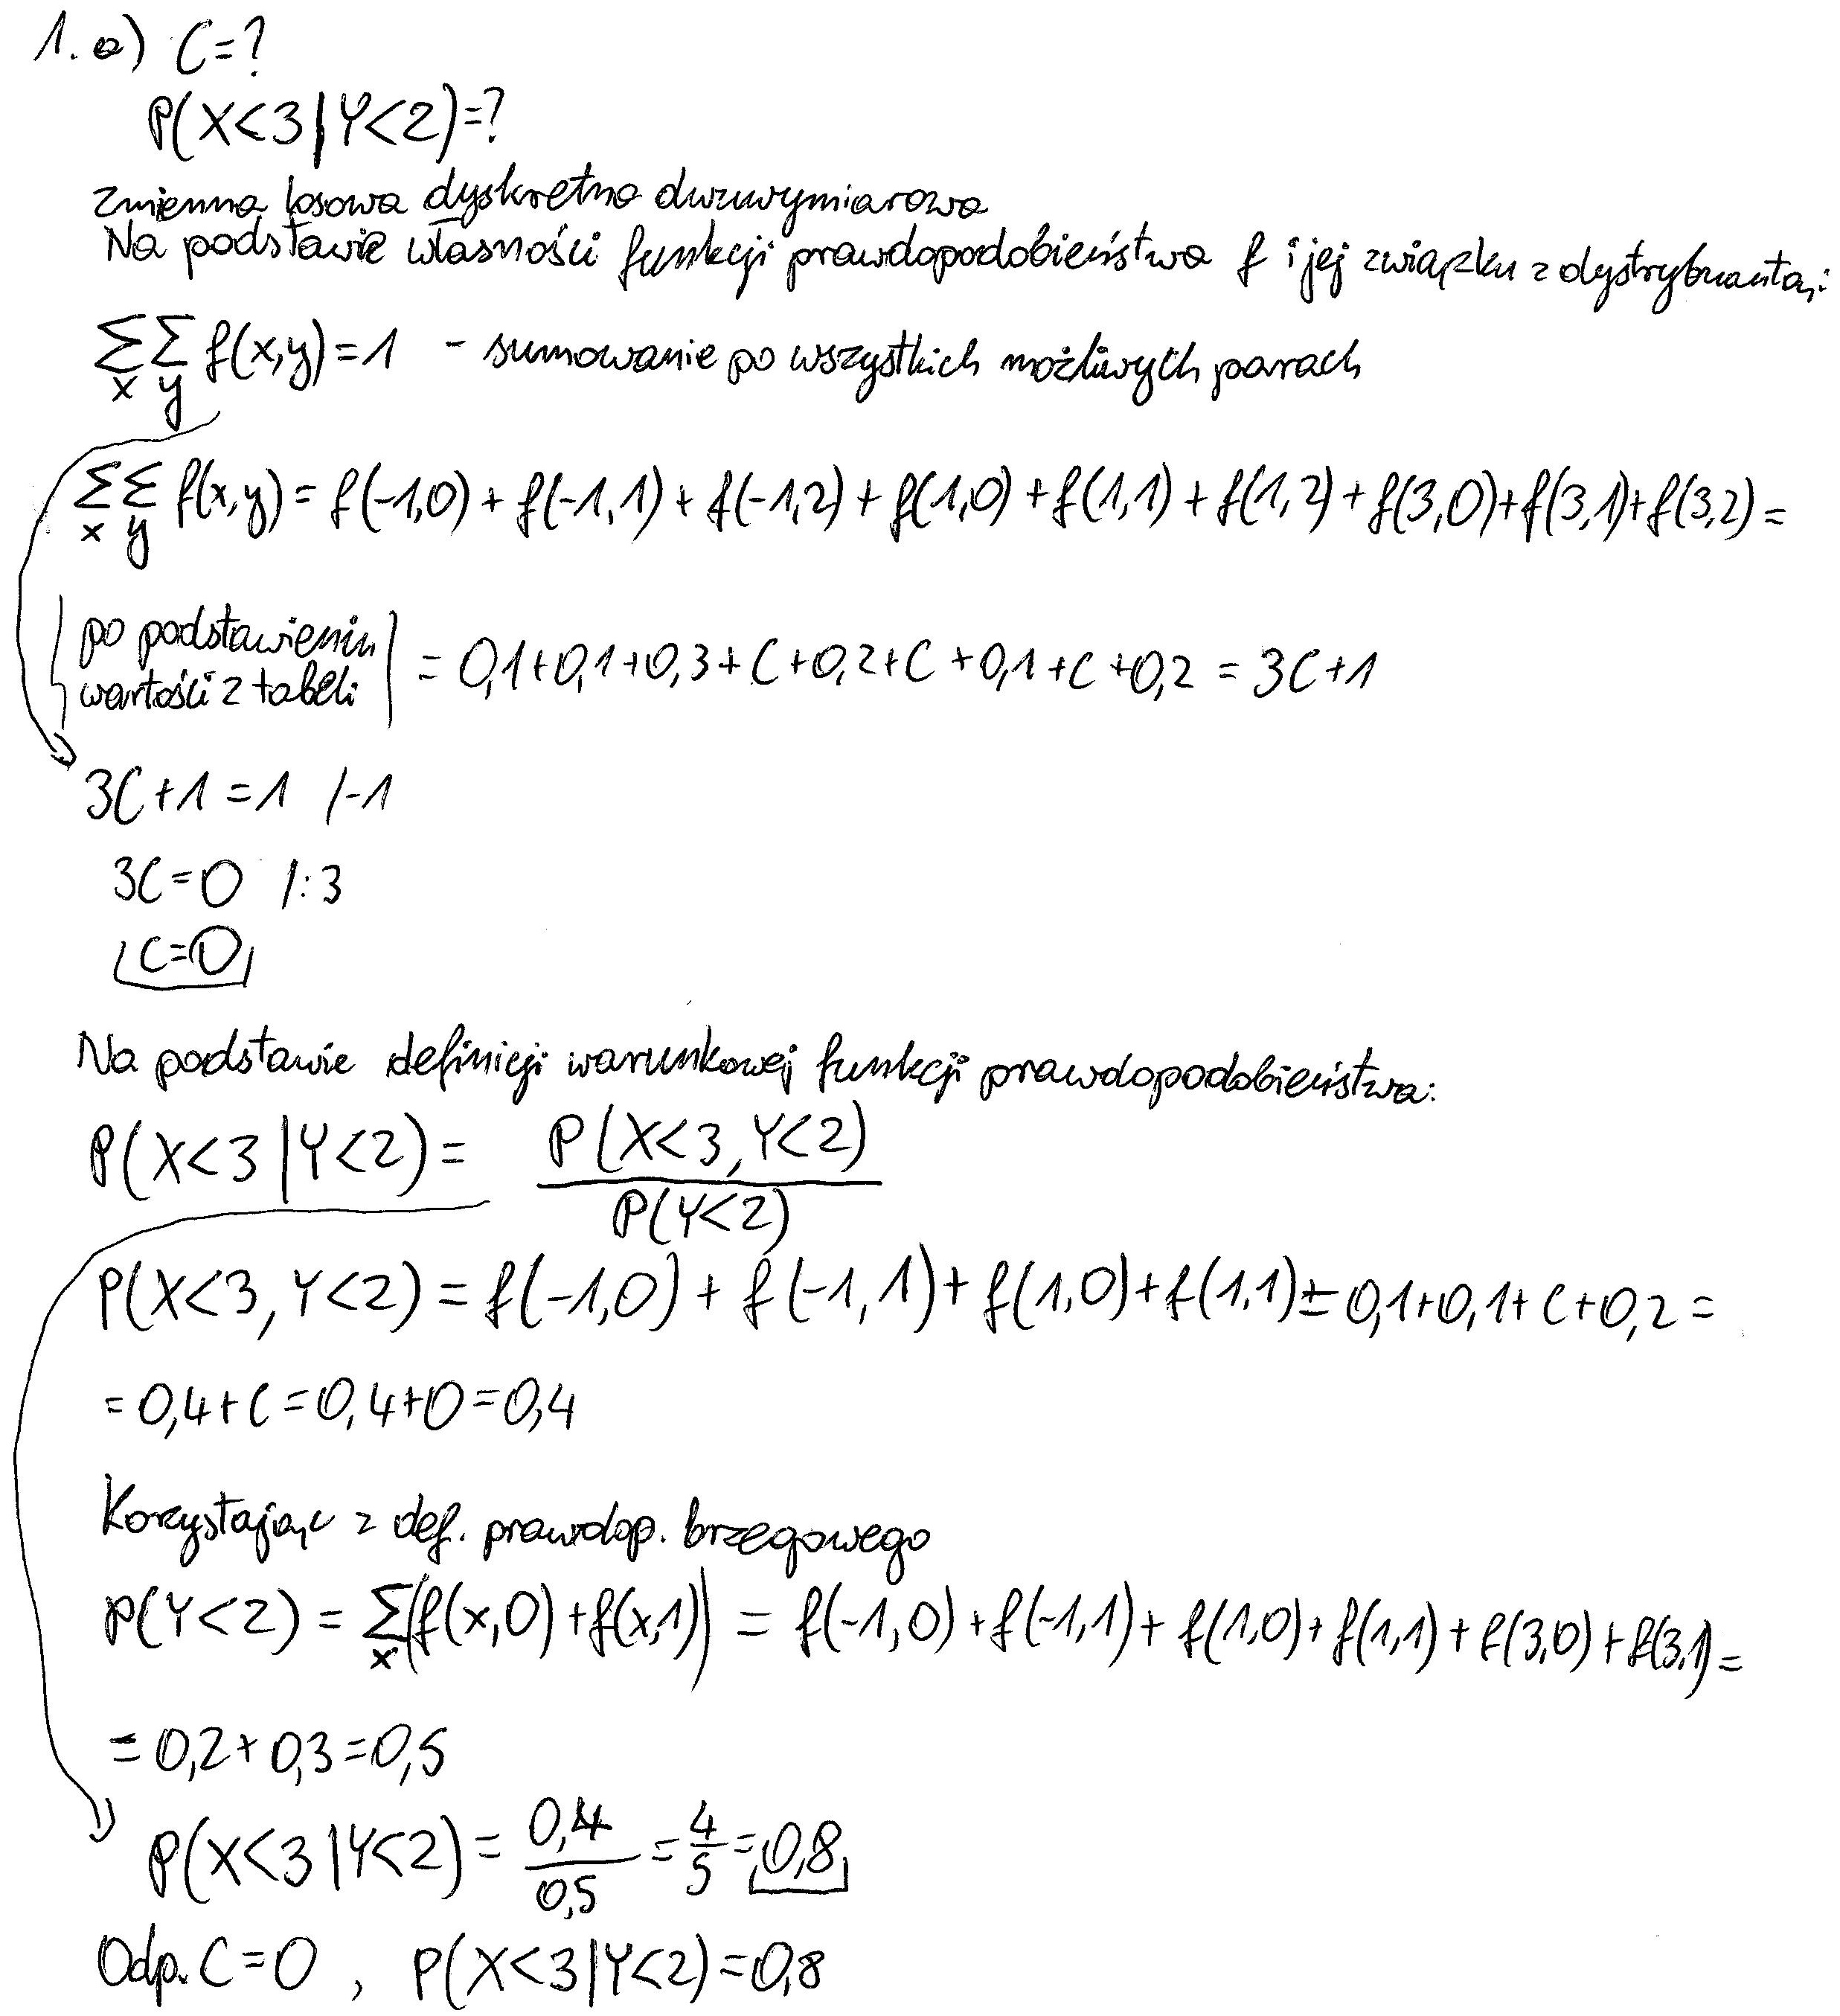 1. a) C=?
P(X<3|Y<2)=?
Zmienna losowa dyskretna dwuwymiarowa
Na podstawie własności funkcji prawdopodobieństwa f i jej związku z dystrybuantą:
∑∑ f(x,y)=1 - sumowanie po wszystkich możliwych parach
x y
∑∑ f(x,y)= f(-1,0) + f(-1,1) + f(-1,2) + f(1,0) + f(1,1) + f(1,2) + f(3,0) + f(3,1) + f(3,2) =
x y
|po podstawieniu
wartości z tabeli| = 0,1+0,1+0,3+C+0,2+C+0,1+C+0,2 = 3C+1
3C+1=1 /-1
3C=0 /:3
C=0
Na podstawie definicji warunkowej funkcji prawdopodobieństwa:
P(X<3|Y<2) = P(X<3,Y<2)
P(Y<2)
P(X<3,Y<2) = f(-1,0) + f(-1,1) + f(1,0) + f(1,1) = 0,1+0,1+C+0,2 =
= 0,4+C = 0,4+0 = 0,4
Korzystając z def. prawdop. brzegowego
P(Y<2) = ∑(f(x,0) + f(x,1)) = f(-1,0) + f(-1,1) + f(1,0) + f(1,1) + f(3,0) + f(3,1) =
x
= 0,2+0,3=0,5
P(X<3|Y<2) = 0,4/0,5 = 4/5 = 0,8
Odp. C=0, P(X<3|Y<2)=0,8